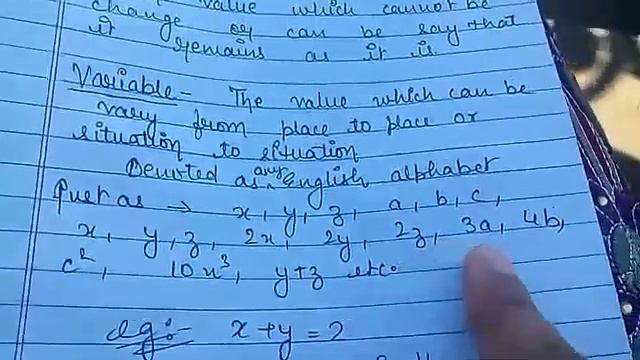 value which cannot be
change or can be say that
it remains as it is
Variable - The value which can be
vary from place to place or
situation to situation
Denoted as any english alphabet
Just as → x, y, z, a, b, c,
x, y, z, 2x, 2y, 2z, 3a, 4b,
c², 10x³, y+z etc.
eg:- x + y = 2